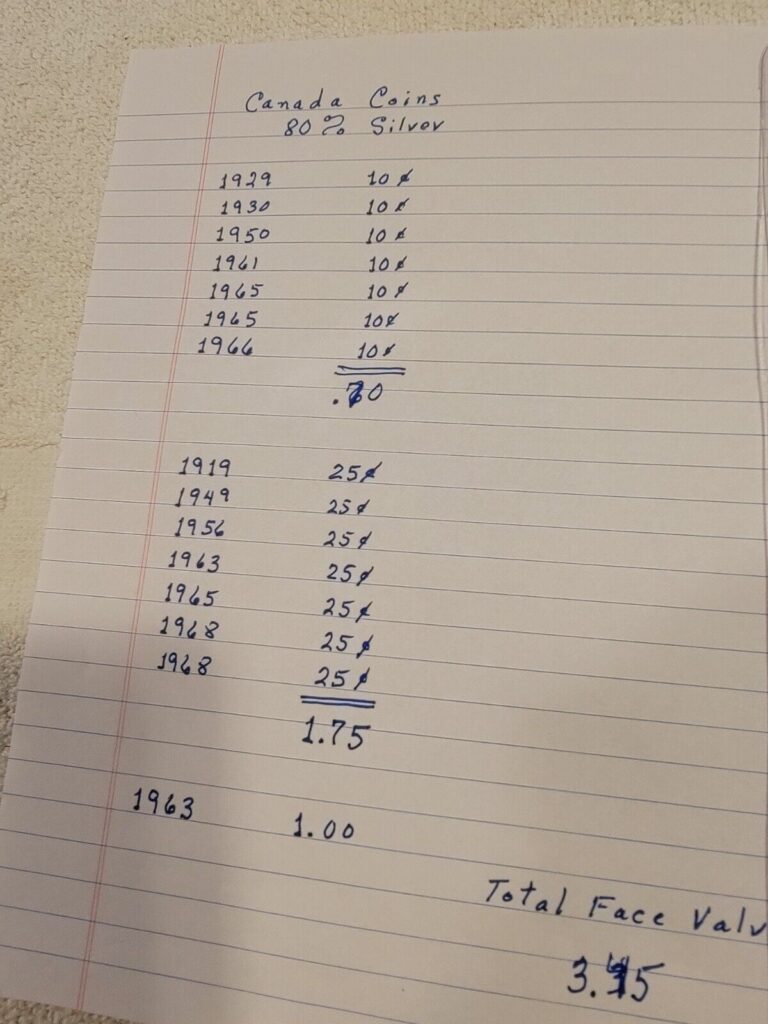 Canada Coins
80% Silver
1929 10¢
1930 10¢
1950 10¢
1961 10¢
1965 10¢
1965 10¢
1966 10¢
.70
1919 25¢
1949 25¢
1956 25¢
1963 25¢
1965 25¢
1968 25¢
1968 25¢
1.75
1963 1.00
Total Face Valu